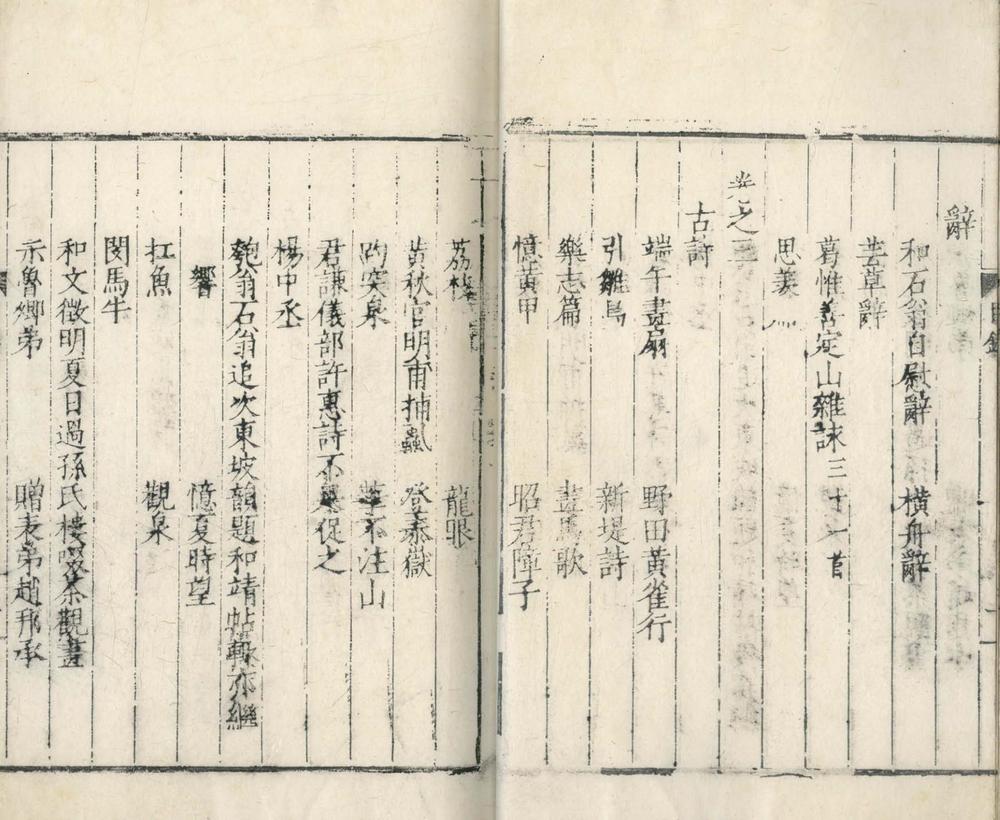 目錄
辭
和石翁自慰辭 橫舟辭
芸草辭
葛惟善定山雜詠三十首
思羲
卷之三
古詩
端午畫扇 野田黃雀行
引雛鳥 新堤詩
樂志篇 畫馬歌
憶黃甲 昭君障子
荔枝 龍眼
黃秋官明甫捕蝨 登泰嶽
趵突泉 華不注山
君謙儀部許惠詩不與促之
楊中丞
匏翁石翁追次東坡韻題和靖帖輙亦繼
響 憶夏時望
扛魚 觀泉
閔馬牛
和文徵明夏日過孫氏樓啜茶觀畫
示魯鄉弟 贈表弟趙邦承